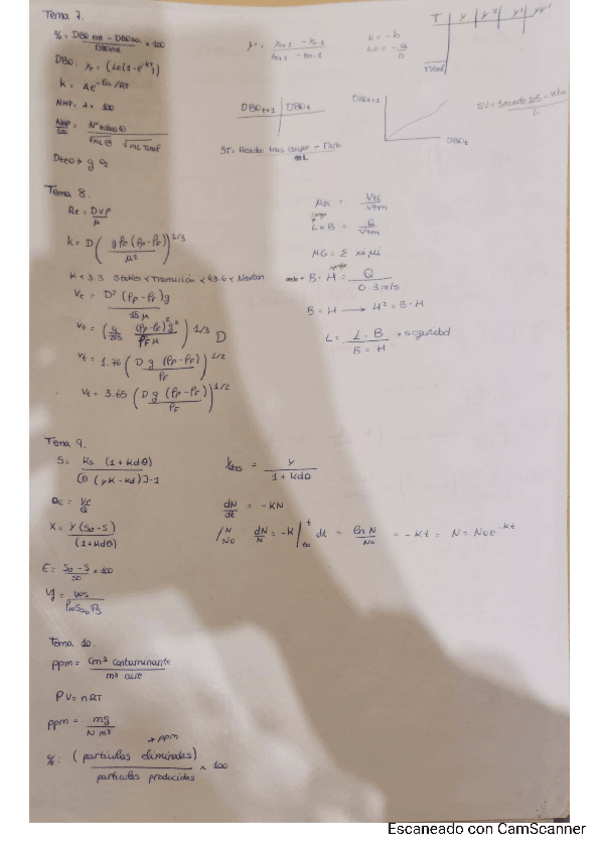 Tema 7.
% = DBO ent - DBO sal / DBO ent × 100
DBO: y = (Lo(1-e^-kt))
k = Ae^-Ea/RT
NMP. λ = 100
NMP/100 = Nº tubos ⊕ / √mL ⊖ √mL Total
Dteo → g O2
y' = yn+1 - yn-1 / tn+1 - tn-1
K = -b
Lo = -a/b
T y y² y' yy'
Total
DBOt+1 DBOt
DBOt+1
DBOt
ST = Residuo tras cargar - Tara / mL
L
Tema 8.
Re = Dvρ/μ
k = D (g ρF (ρp-ρF) / μ²)^1/3
K < 3.3 Stokes < Transición < 43.6 < Newton
Vt = D² (ρp-ρF)g / 18 μ
Vt = (4/225 (ρp-ρF)²g² / ρF μ)^1/3 D
Vt = 1.76 (D g (ρp-ρF) / ρF)^1/2
Vt = 3.65 (D g (ρp-ρF) / ρF)^1/2
= Vts / Vtm
L·B = Q / Vtm
μG = Σ xi μi
B·H = Q / 0.3 m/s
B = H → H² = B·H
L = L·B / B = H + seguridad
Tema 9.
S = Ks (1+kdθ) / (θ (yK-kd))-1
θc = Vr/Q
X = Y (So-S) / (1+Kdθ)
E = So-S / So × 100
Yobs = Y / 1+kdθ
dN/dt = -KN
∫N No dN/N = -k ∫t to dt = ln N/No = -kt = N = No e^-kt
Tema 10.
ppm = cm³ contaminante / m³ aire
PV = nRT
ppm = mg / N m³
→ ppm
%: (partículas eliminadas) / partículas producidas × 100
Escaneado con CamScanner